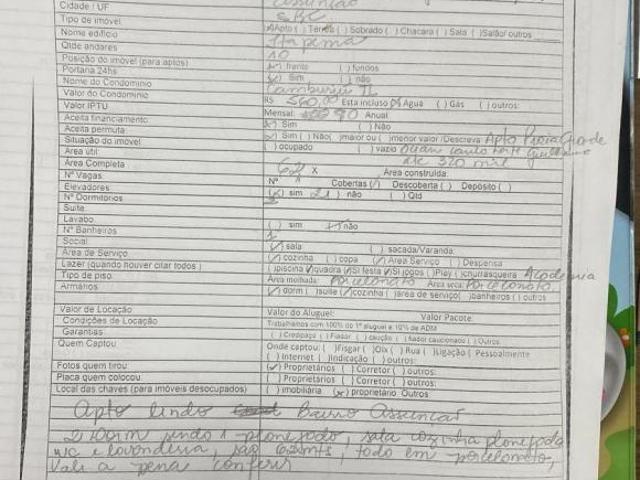 Assunção
Cidade / UF SBC
Tipo de imóvel (x)Apto ( )Térreo ( )Sobrado ( )Chacara ( )Sala ( )Salão/ outros
Nome edificio Itapema
Qtde andares 10
Posição do imovel (para aptos) (x) frente ( ) fundos
Portaria 24hs (x) Sim ( ) não
Nome do Condominio Camburiu II
Valor do Condominio R$ 560,00 Esta incluso (x) Agua ( ) Gás ( ) outros:
Valor IPTU Mensal: 90 Anual
Aceita financiamento (x) Sim ( ) Não
Aceita permuta (x) Sim ( ) Não( )maior ou ( )menor valor /Descreva: Apto Praia Grande
Situação do imóvel ( ) ocupado ( ) vazio
até 320 mil
Área útil: 62 x Área construida:
Área Completa
Nº Vagas Nº 1 Cobertas (/) Descoberta ( ) Depósito ( )
Elevadores (x) sim 2 ) não ( ) Qtd
Nº Dormitorios 2
Suite
Lavabo ( ) sim (/) não
Nº Banheiros 1
Social (/) sala ( ) sacada/Varanda:
Área de Serviço (/) cozinha ( ) copa (/) Área Serviço ( ) Despensa
Lazer (quando houver citar todos ) ( )piscina (/)quadra (/)Sl festa (/)Sl jogos ( )Play ( )churrasqueira Academia
Tipo de piso Área molhada: Porcelanato Área seca: Porcelanato
Armários (/) dorm ( )suíte (/)cozinha ( )área de serviço( )banheiros ( ) outros
Valor de Locação Valor do Aluguel: Valor Pacote:
Condições de Locação Trabalhamos com 100% do 1º aluguel e 10% de ADM
Garantias: ( ) Credpago ( ) Fiador ( ) caução ( ) fiador caucionado ( ) Outros
Quem Captou Onde captou: ( )Fisgar ( )Olx ( ) Rua ( )Ligação ( Pessoalmente
( ) Internet ( )Indicação ( ) outros:
Fotos quem tirou: (✓) Proprietários ( ) Corretor ( ) outros:
Placa quem colocou: ( ) Proprietários ( ) Corretor ( ) outros:
Local das chaves (para imóveis desocupados) ( ) imobiliária (x) proprietário Outros:
Apto lindo Bairro Assunção
2 dorm sendo 1 planejado, sala cozinha planejada
wc e lavanderia, são 62mts, todo em porcelanato,
Vale a pena conferir